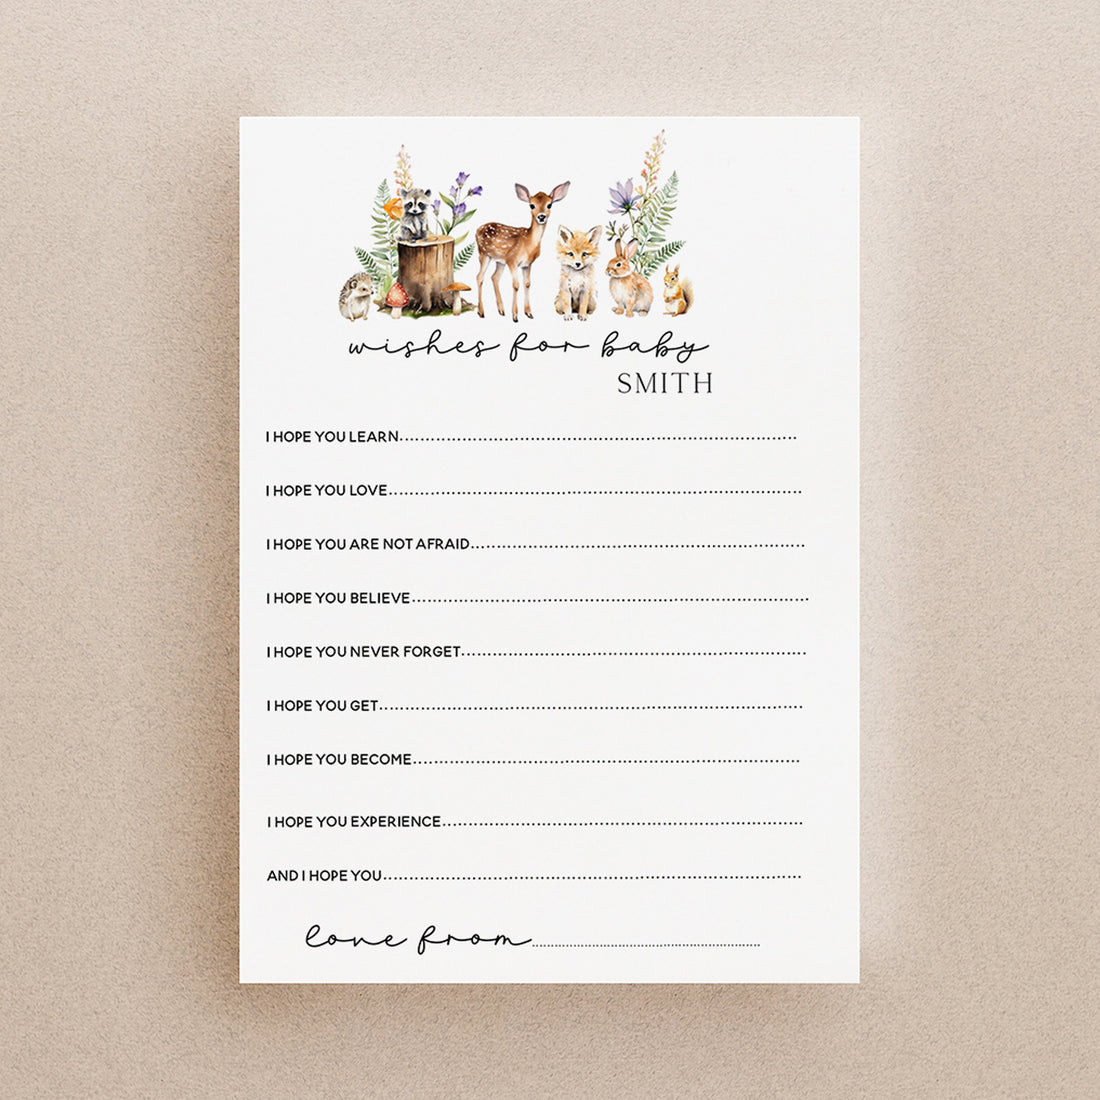 wishes for baby
SMITH
I HOPE YOU LEARN................................................................
I HOPE YOU LOVE................................................................
I HOPE YOU ARE NOT AFRAID................................................................
I HOPE YOU BELIEVE................................................................
I HOPE YOU NEVER FORGET................................................................
I HOPE YOU GET................................................................
I HOPE YOU BECOME................................................................
I HOPE YOU EXPERIENCE................................................................
AND I HOPE YOU................................................................
love from................................................................